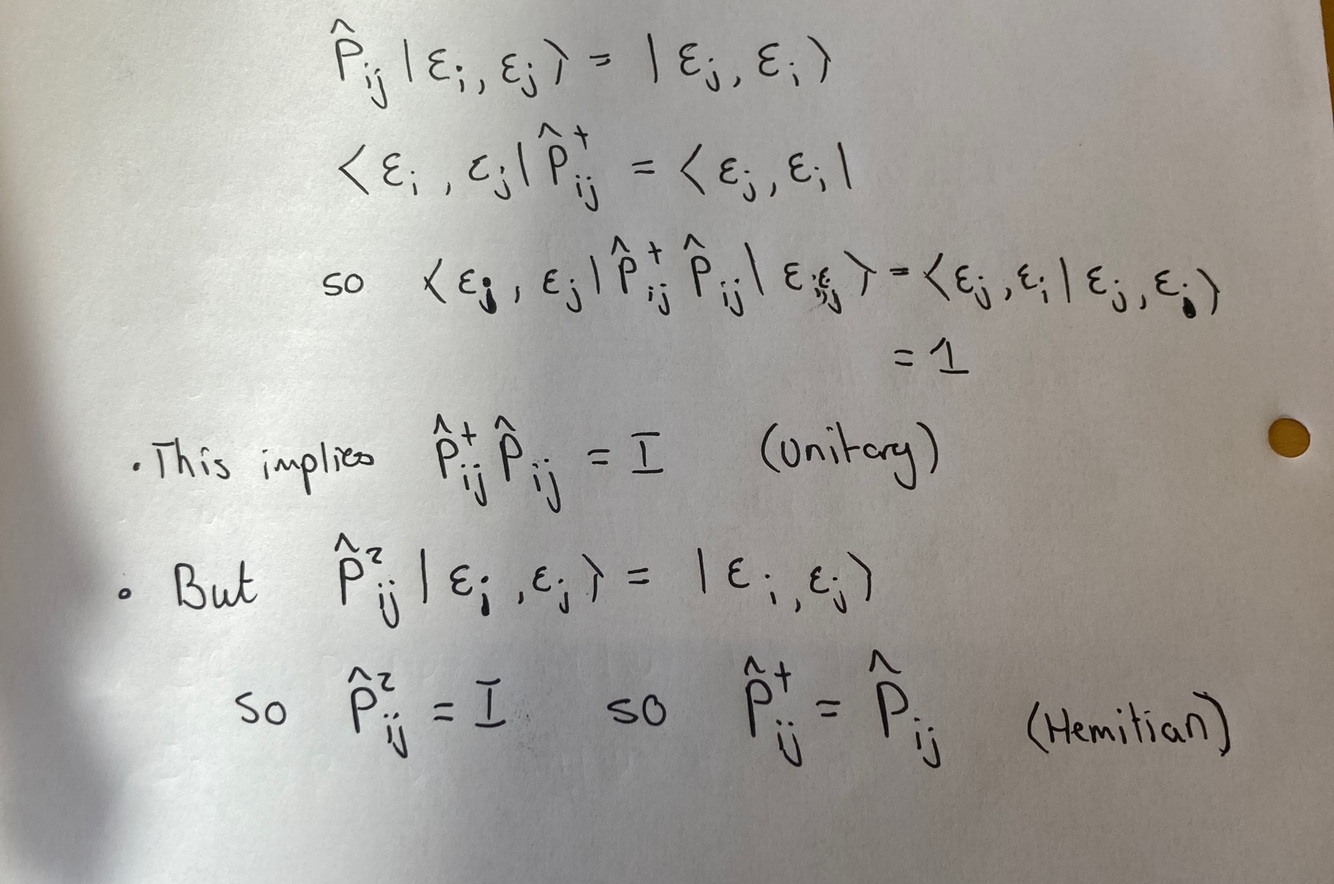 P̂ᵢⱼ |εᵢ, εⱼ⟩ = |εⱼ, εᵢ⟩
⟨εᵢ, εⱼ| P̂ᵢⱼ† = ⟨εⱼ, εᵢ|
so ⟨εᵢ, εⱼ| P̂ᵢⱼ† P̂ᵢⱼ | εᵢ, εⱼ⟩ = ⟨εⱼ, εᵢ | εⱼ, εᵢ⟩
= 1
• This implies P̂ᵢⱼ† P̂ᵢⱼ = I (Unitary)
• But P̂²ᵢⱼ | εᵢ, εⱼ⟩ = | εᵢ, εⱼ⟩
so P̂²ᵢⱼ = I so P̂ᵢⱼ† = P̂ᵢⱼ (Hemitian)